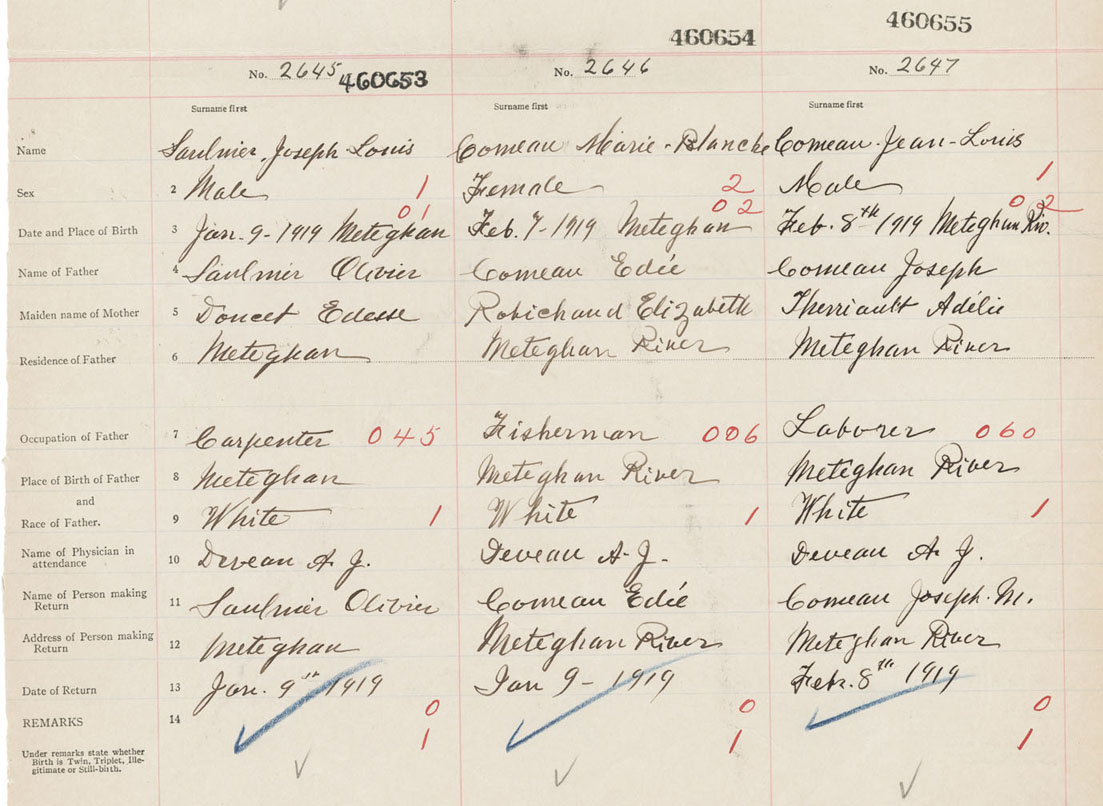 460653 460654 460655
No. 2645 No. 2646 No. 2647
Surname first Surname first Surname first
Name Saulnier, Joseph Louis Comeau Marie-Blanche Comeau Jean-Louis
Sex 2 Male 1 Female 2 Male 1
01 02 02
Date and Place of Birth 3 Jan. 9-1919 Meteghan Feb. 7-1919 Meteghan Feb. 8th 1919 Meteghan Riv.
Name of Father 4 Saulnier Olivier Comeau Edée Comeau Joseph
Maiden name of Mother 5 Doucet Edesse Robichaud Elizabeth Therriault Adélie
Residence of Father 6 Meteghan Meteghan River Meteghan River
Occupation of Father 7 Carpenter 045 Fisherman 006 Laborer 060
Place of Birth of Father 8 Meteghan Meteghan River Meteghan River
and
Race of Father. 9 White 1 White 1 White 1
Name of Physician in
attendance 10 Deveau A. J. Deveau A. J. Deveau A. J.
Name of Person making
Return 11 Saulnier Olivier Comeau Edée Comeau Joseph. M.
Address of Person making
Return 12 Meteghan Meteghan River Meteghan River
Date of Return 13 Jan. 9th 1919 Jan 9-1919 Feb. 8th 1919
REMARKS 14 0 0 0
Under remarks state whether
Birth is Twin, Triplet, Ille-
gitimate or Still-birth. 1 1 1